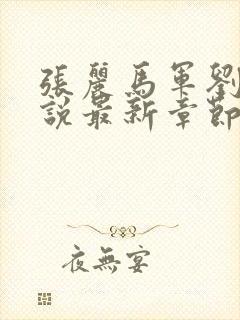 張麗馬軍劉
說最新章節
夜無宴